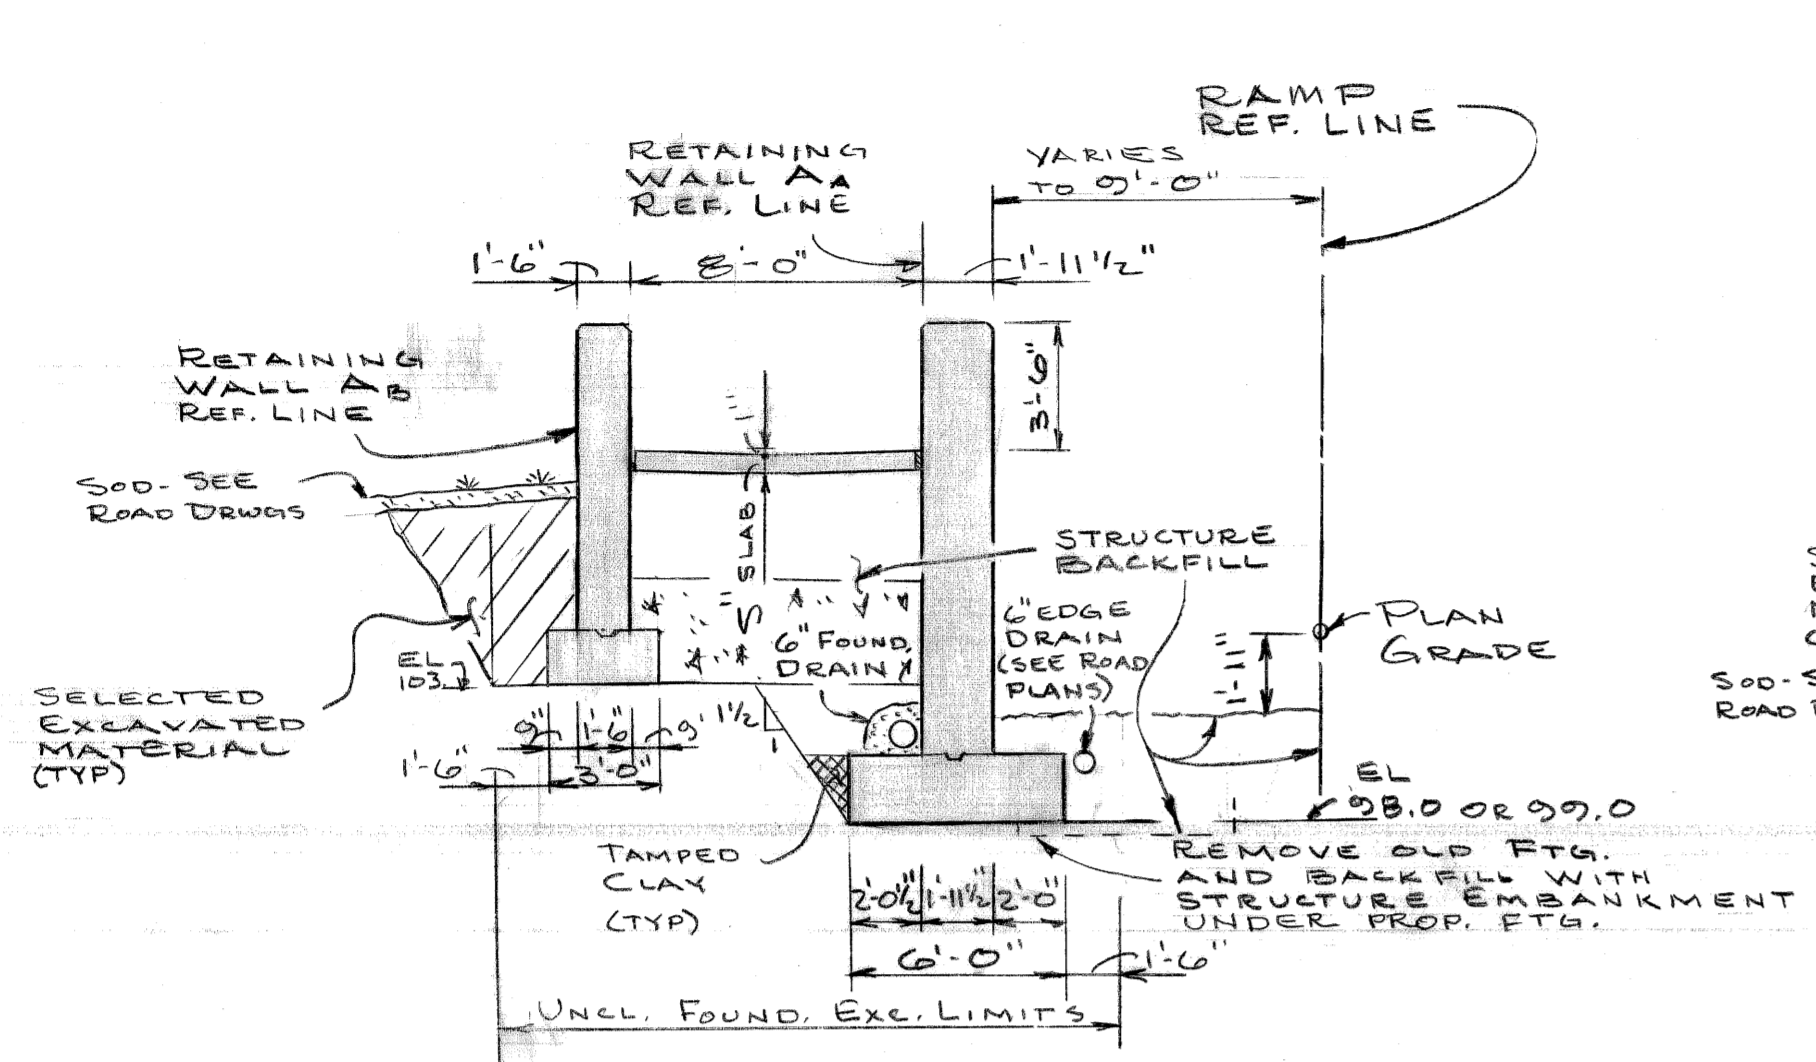 RAMP
REF. LINE
RETAINING
WALL AA
REF. LINE
VARIES
TO 9'-0"
1'-6"
8'-0"
1'-11 1/2"
RETAINING
WALL AB
REF. LINE
3'-6"
1"
SOD - SEE
ROAD DRWGS
5" SLAB
STRUCTURE
BACKFILL
6" EDGE
DRAIN
(SEE ROAD
PLANS)
6" FOUND.
DRAIN
PLAN
GRADE
1'-1"
EL
103
SELECTED
EXCAVATED
MATERIAL
(TYP)
SOD - S
ROAD
1 1/2
1
9"
1'-6"
9"
1'-6"
3'-0"
EL
98.0 OR 99.0
TAMPED
CLAY
(TYP)
REMOVE OLD FTG.
AND BACKFILL WITH
STRUCTURE EMBANKMENT
UNDER PROP. FTG.
2'-0 1/2"
1'-11 1/2"
2'-0"
6'-0"
1'-6"
UNCL. FOUND. EXC. LIMITS